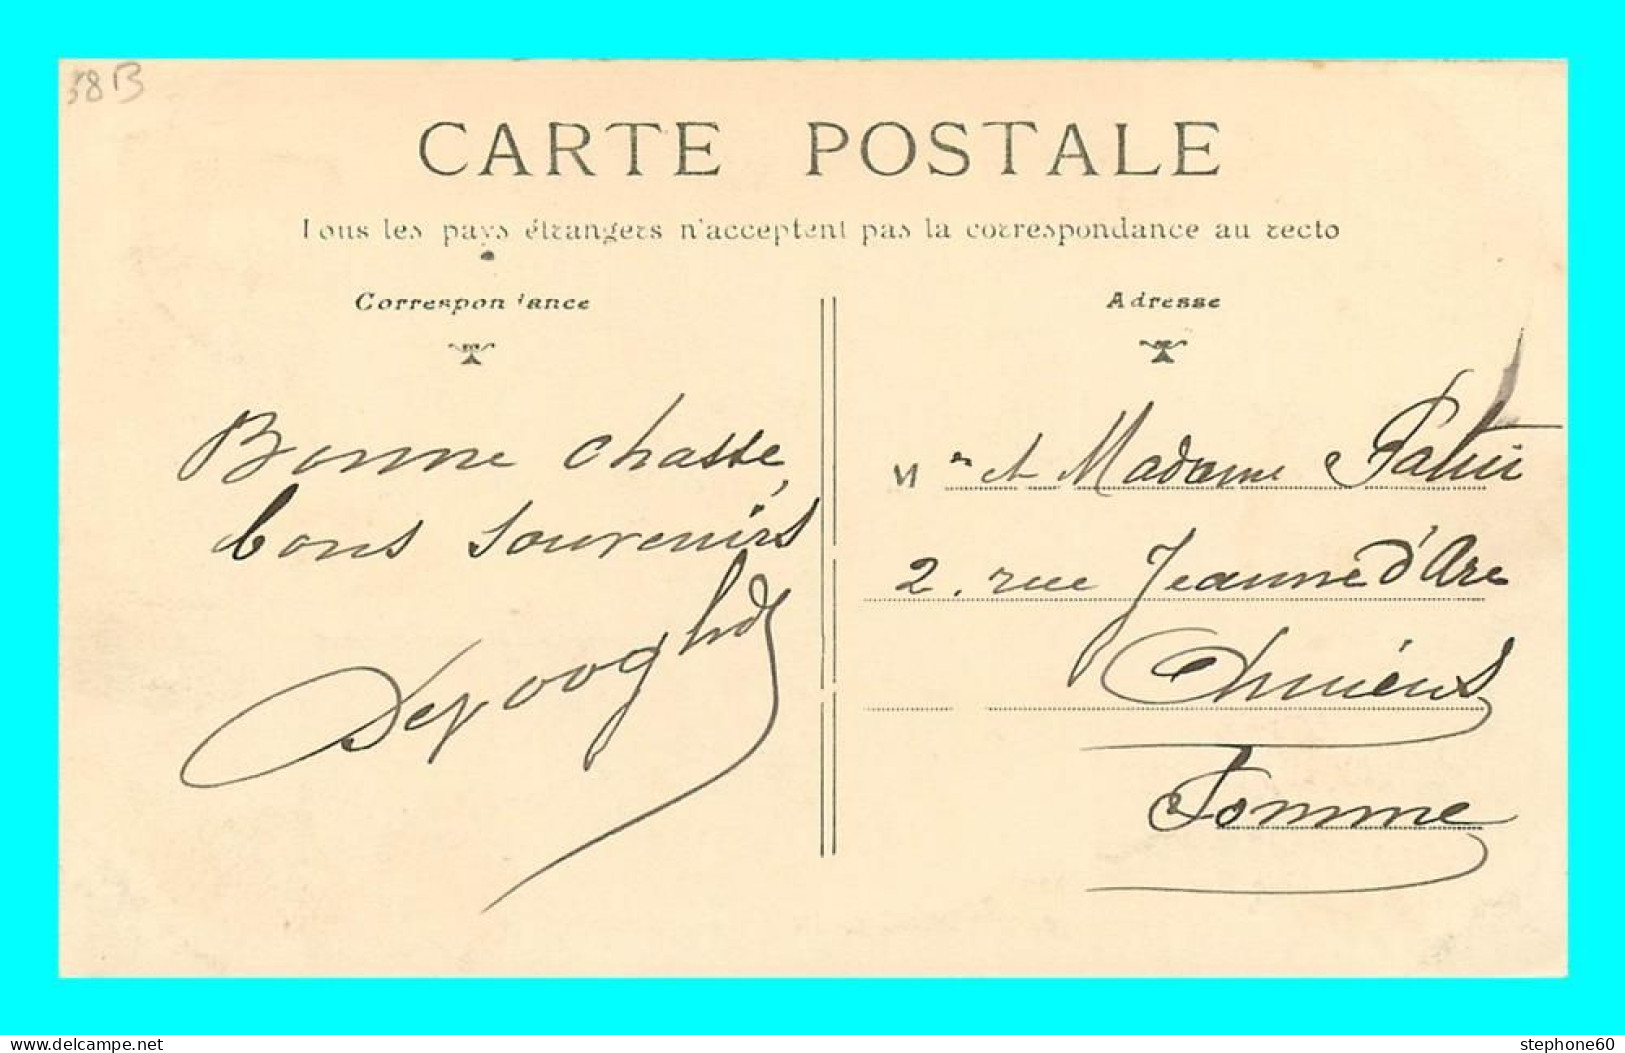 58B
CARTE POSTALE
Tous les pays étrangers n'acceptent pas la correspondance au recto
Correspondance
Adresse
Bonne chasse,
bons souvenirs
Mr et Madame
2. rue Jeanne d'Arc
Amiens
Somme
delcampe.net
stephone60